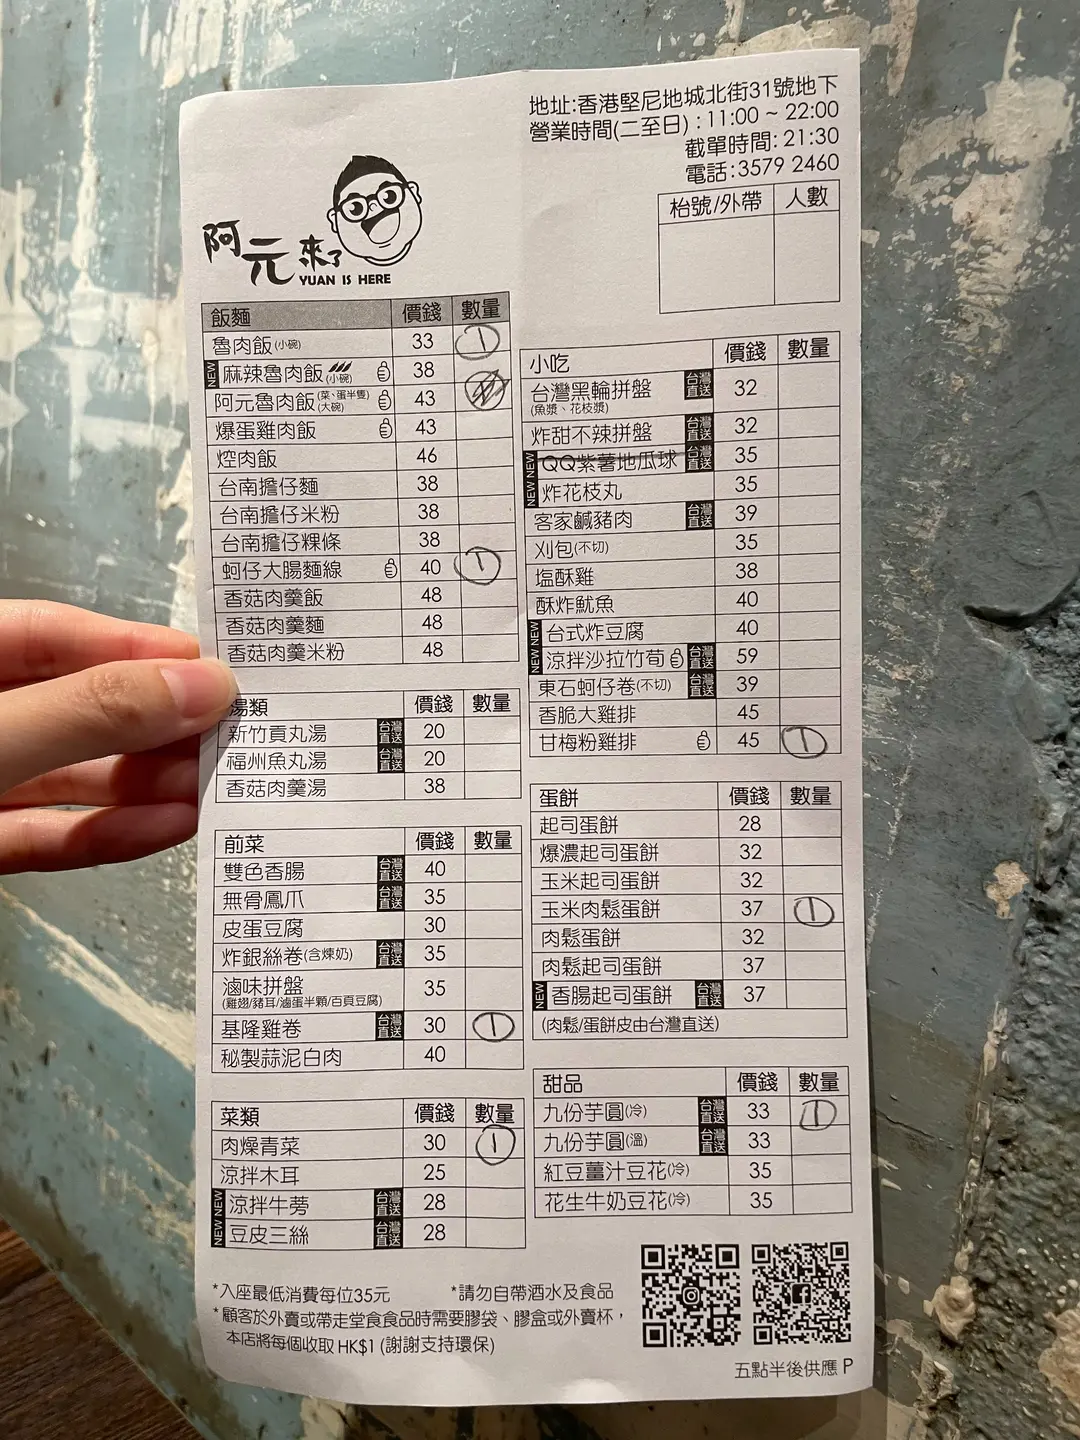 地址:香港堅尼地城北街31號地下
營業時間(二至日):11:00 ~ 22:00
截單時間:21:30
電話:3579 2460
枱號/外帶 人數
阿元來了
YUAN IS HERE
飯麵 價錢 數量
魯肉飯(小碗) 33 1
NEW 麻辣魯肉飯(小碗) 38
阿元魯肉飯(菜、蛋半隻)(大碗) 43
爆蛋雞肉飯 43
焢肉飯 46
台南擔仔麵 38
台南擔仔米粉 38
台南擔仔粿條 38
蚵仔大腸麵線 40 1
香菇肉羹飯 48
香菇肉羹麵 48
香菇肉羹米粉 48
湯類 價錢 數量
新竹貢丸湯 台灣直送 20
福州魚丸湯 台灣直送 20
香菇肉羹湯 38
前菜 價錢 數量
雙色香腸 台灣直送 40
無骨鳳爪 台灣直送 35
皮蛋豆腐 30
炸銀絲卷(含煉奶) 台灣直送 35
滷味拼盤 35
(雞翅/豬耳/滷蛋半顆/百頁豆腐)
基隆雞卷 台灣直送 30 1
秘製蒜泥白肉 40
菜類 價錢 數量
肉燥青菜 30 1
涼拌木耳 25
NEW 涼拌牛蒡 台灣直送 28
NEW 豆皮三絲 台灣直送 28
小吃 價錢 數量
台灣黑輪拼盤 台灣直送 32
(魚漿、花枝漿)
炸甜不辣拼盤 台灣直送 32
NEW QQ紫薯地瓜球 台灣直送 35
NEW 炸花枝丸 35
客家鹹豬肉 台灣直送 39
刈包(不切) 35
塩酥雞 38
酥炸魷魚 40
NEW 台式炸豆腐 40
NEW 涼拌沙拉竹筍 台灣直送 59
東石蚵仔卷(不切) 台灣直送 39
香脆大雞排 45
甘梅粉雞排 45 1
蛋餅 價錢 數量
起司蛋餅 28
爆濃起司蛋餅 32
玉米起司蛋餅 32
玉米肉鬆蛋餅 37 1
肉鬆蛋餅 32
肉鬆起司蛋餅 37
NEW 香腸起司蛋餅 台灣直送 37
(肉鬆/蛋餅皮由台灣直送)
甜品 價錢 數量
九份芋圓(冷) 台灣直送 33 1
九份芋圓(溫) 台灣直送 33
紅豆薑汁豆花(冷) 35
花生牛奶豆花(冷) 35
*入座最低消費每位35元 *請勿自帶酒水及食品
*顧客於外賣或帶走堂食食品時需要膠袋、膠盒或外賣杯，
本店將每個收取 HK$1 (謝謝支持環保)
五點半後供應 P